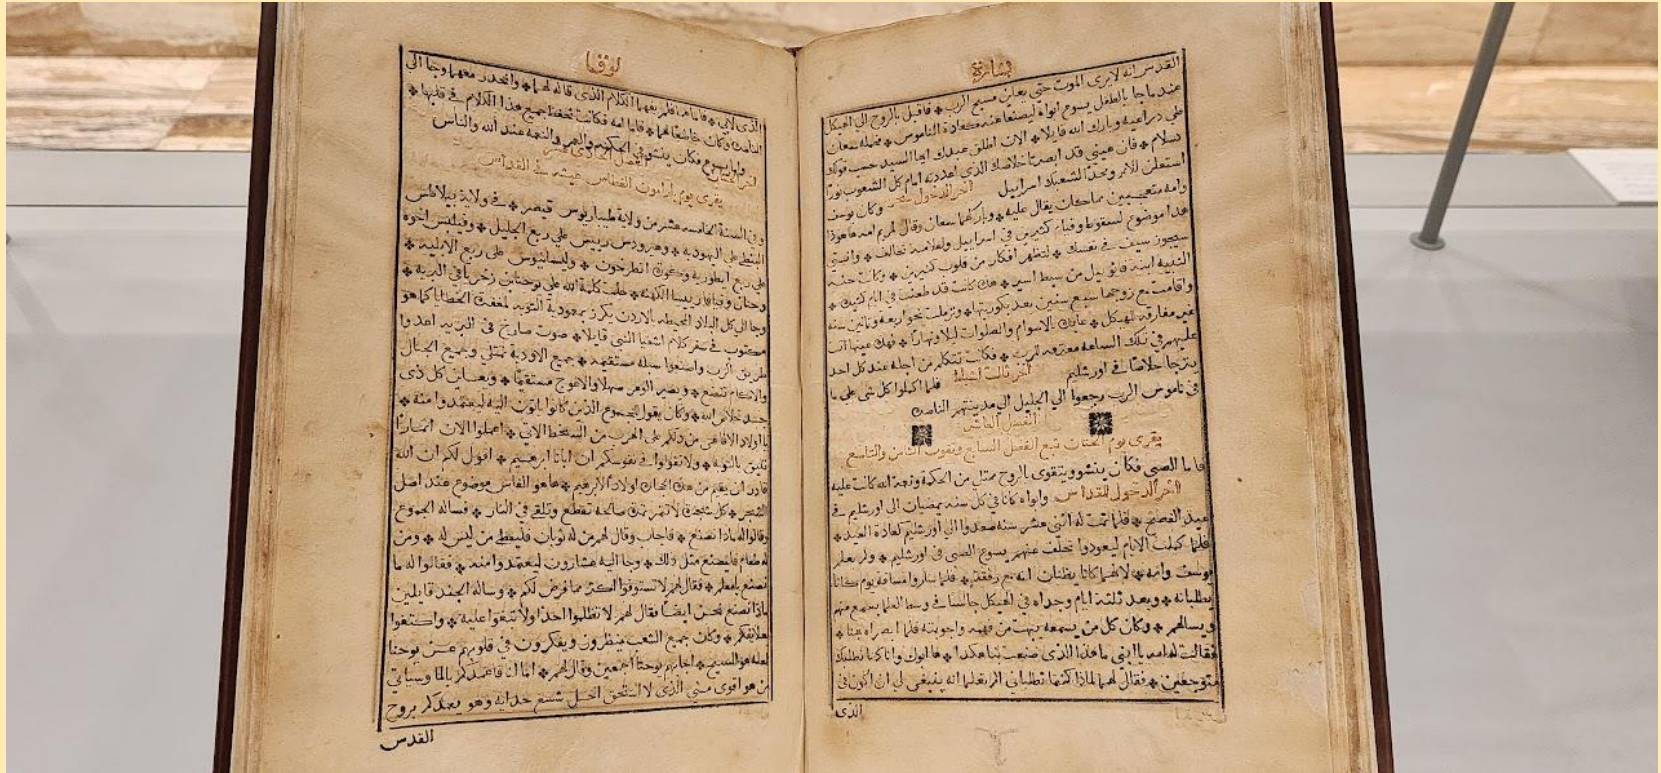 بشارة
القدس انه لا يرى الموت حتى يعاين مسيح الرب ❖ فاقبل بالروح الى الهيكل
عند ما جا بالطفل يسوع ابواه ليصنعا عنه كعادة الناموس ❖ فحمله سمعان
على دراعيه وبارك الله قايلا ❖ الان اطلق عبدك ايها السيد حسب قولك
بسلام ❖ فان عيني قد ابصرتا خلاصك الذي اعددته امام كل الشعوب نورا
استعلن للامم ومجدا لشعبك اسراييل اخر الدخول وكان يوسف
وامه متعجبين مما كان يقال عليه ❖ وباركهما سمعان وقال لمريم امه ها هوذا
هدا موضوع لسقوط وقيام كثيرين في اسراييل ولعلامه تخالف ❖ وانتي
سيجوز سيف في نفسك ❖ لتظهر افكار من قلوب كثيرين ❖ وكانت حنه
النبيه ابنة فانوييل من سبط اسير ❖ هذه كانت قد طعنت في ايام كثيرة ❖
واقامت مع زوجها سبع سنين بعد بكوريتها ❖ وترملت نحو اربعه وثمانين سنه
غير مفارقة الهيكل ❖ عابدة بالاصوام والصلوات ليلا ونهارا ❖
في تلك الساعه معترفه للرب ❖ فكانت تتكلم من اجله عند كل احد
يترجا خلاصا في اورشليم فلما اكملوا كل شي على ما
في ناموس الرب رجعوا الى الجليل الى مدينتهم الناصره
الفصل العاشر
يقرى يوم الختان تبع الفصل السابع وتفوت الثامن والتاسع
فاما الصبي فكان ينشو ويتقوى بالروح ممتلي من الحكمة ونعمة الله كانت عليه
اخر الدخول للقداس وابواه كانا في كل سنه يمضيان الى اورشليم في
عيد الفصح ❖ فلما تمت له اثنى عشر سنه صعدوا الى اورشليم كعادة العيد ❖
فلما كملت الايام ليعودوا تخلف عنهم يسوع الصبي في اورشليم ❖ ولم يعلم
يوسف وامه ❖ لانهما كانا يظنان انه مع رفقته ❖ فلما سارا مسافة يوم كانا
يطلبانه ❖ وبعد ثلثة ايام وجداه في الهيكل جالسا في وسط العلما يسمع منهم
ويسالهم ❖ وكان كل من يسمعه يبهت من فهمه واجوبته فلما ابصراه بهتا ❖
فقالت له امه يا ابني ما هذا الذي صنعت بنا هكذا ❖ ها ابوك وانا كنا نطلبك
متوجعين ❖ فقال لهما لماذا كنتما تطلباني الم تعلما انه ينبغي لي ان اكون في
الذي
لوقا
الذي لابي ❖ فاما هما فلم يفهما الكلام الذي قاله لهما ❖ وانحدر معهما وجا الى
الناصره وكان خاضعا لهما ❖ فاما امه فكانت تحفظ جميع هذا الكلام في قلبها ❖
واما يسوع فكان ينشو في الحكمه والعمر والنعمه عند الله والناس
الفصل الحادي عشر
يقرى يوم بارامون الغطاس عيشه في القداس
وفي السنة الخامسه عشر من ولاية طيباريوس قيصر ❖ في ولاية بيلاطس
البنطي على اليهوديه ❖ وهيرودس رييس على ربع الجليل ❖ وفيلبس اخوه
على ربع ايطوريه وكورة انطرخون ❖ وليسانيوس على ربع الابلية ❖
وحنان وقيافا رييسا الكهنه ❖ حلت كلمة الله على يوحنا بن زخريا في البريه ❖
وجا الى كل البلاد المحيطه بالاردن يكرز بمعمودية التوبه لمغفرة الخطايا كما هو
مكتوب في سفر كلام اشعيا النبي قايلا ❖ صوت صارخ في البريه اعدوا
طريق الرب واصنعوا سبله مستقيمه ❖ جميع الاودية تمتلى وجميع الجبال
والاكام تتضع ❖ ويصير الوعر سهلا والاعوج مستقيما ❖ ويعاين كل ذي
جسد خلاص الله ❖ وكان يقول للجموع الذين كانوا ياتون اليه ليعتمدوا منه ❖
يا اولاد الافاعي من دلكم على الهرب من السخط الاتي ❖ اعملوا الان اثمارا
تليق بالتوبه ❖ ولا تقولوا في نفوسكم ان ابانا ابرهيم ❖ اقول لكم ان الله
قادر ان يقيم من هذه الحجارة اولادا لابرهيم ❖ ها هو الفاس موضوع عند اصل
الشجر ❖ كل شجرة لا تثمر ثمرة صالحة تقطع وتلقى في النار ❖ فساله الجموع
وقالوا له ماذا نصنع ❖ فاجاب وقال لهم من له ثوبان فليعطي من ليس له ❖ ومن
له طعام فليصنع مثل ذلك ❖ وجا اليه عشارون ليعتمدوا منه ❖ فقالوا له ما
نصنع يا معلم ❖ فقال لهم لا تستوفوا اكثر مما فرض لكم ❖ وساله الجند قايلين
ماذا نصنع نحن ايضا فقال لهم لا تظلموا احدا ولا تبغوا عليه ❖ واكتفوا
بعلايفكم ❖ وكان جميع الشعب ينظرون ويفكرون في قلوبهم عن يوحنا
لعله هو المسيح ❖ اجابهم يوحنا اجمعين وقال لهم ❖ اما انا فاعمدكم بالما وسياتي
من هو اقوى مني الذي لا استحق احل شسع حدايه وهو يعمدكم بروح
القدس